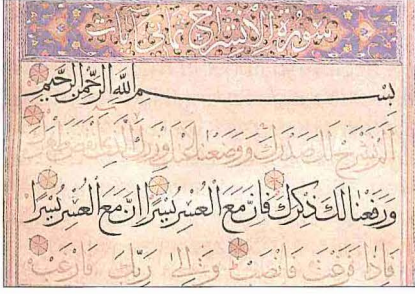 سورة الانشراح ثماني آيات
بِسْمِ اللّٰهِ الرَّحْمٰنِ الرَّحِيمِ
أَلَمْ نَشْرَحْ لَكَ صَدْرَكَ وَوَضَعْنَا عَنْكَ وِزْرَكَ الَّذِي أَنْقَضَ ظَهْرَكَ
وَرَفَعْنَا لَكَ ذِكْرَكَ فَإِنَّ مَعَ الْعُسْرِ يُسْرًا إِنَّ مَعَ الْعُسْرِ يُسْرًا
فَإِذَا فَرَغْتَ فَانْصَبْ وَإِلَى رَبِّكَ فَارْغَبْ